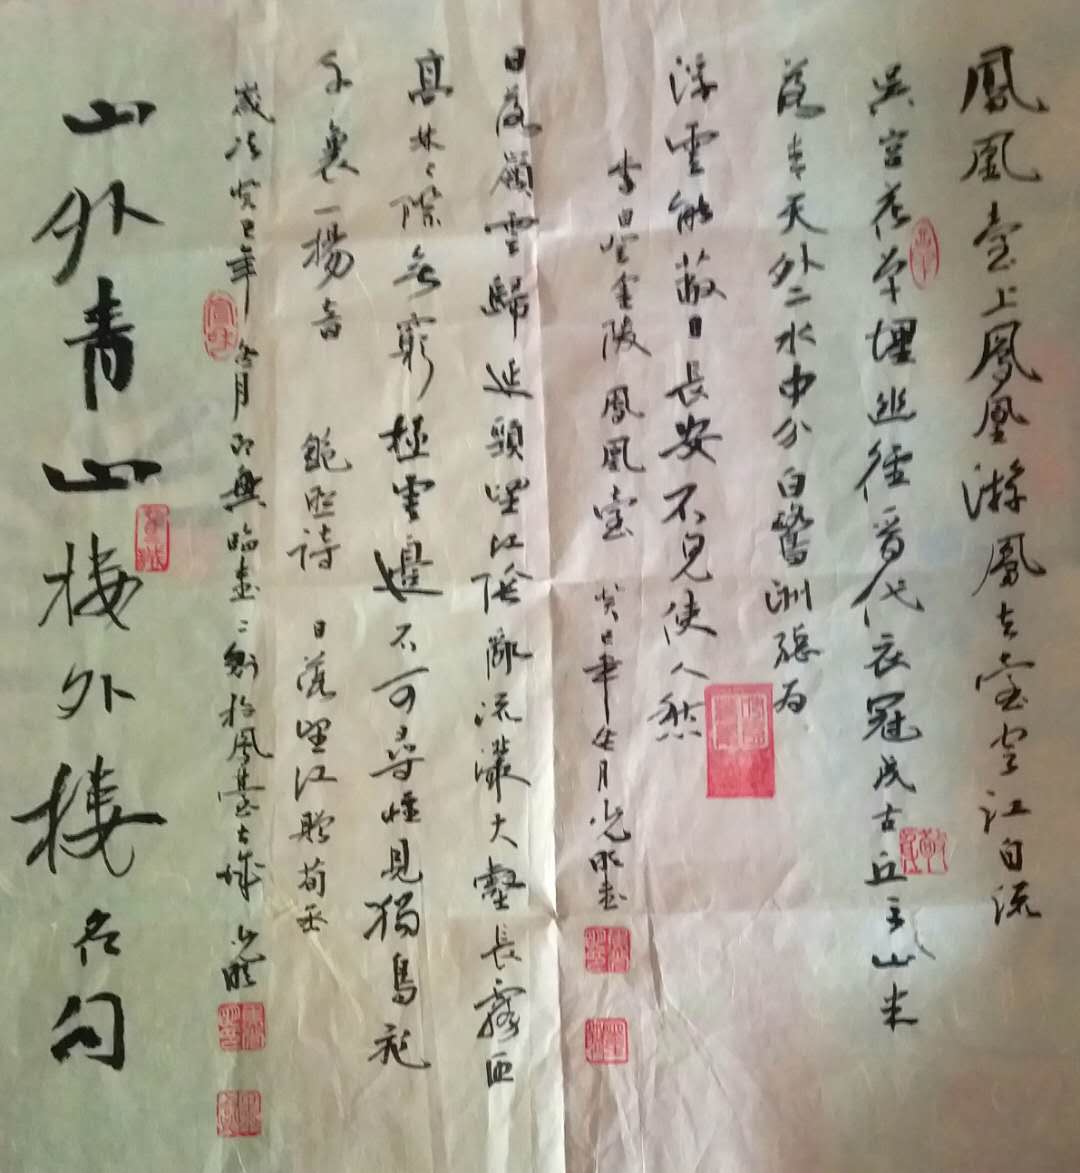 鳳凰臺上鳳凰游鳳去臺空江自流
吳宮花草埋幽徑晉代衣冠成古丘三山半
落青天外二水中分白鷺洲總為
浮雲能蔽日長安不見使人愁
李白登金陵鳳凰臺 癸巳年冬月光明書
日落嶺雲歸延頸望江陰亂流灇大壑長霧匝
高林々際無窮極雲邊不可尋惟見獨鳥飛
千裏一揚音 鮑照詩 日落望江贈荀丞
歲次癸巳年冬月 臨書 於鳳臺古城 光明
山外青山樓外樓名句